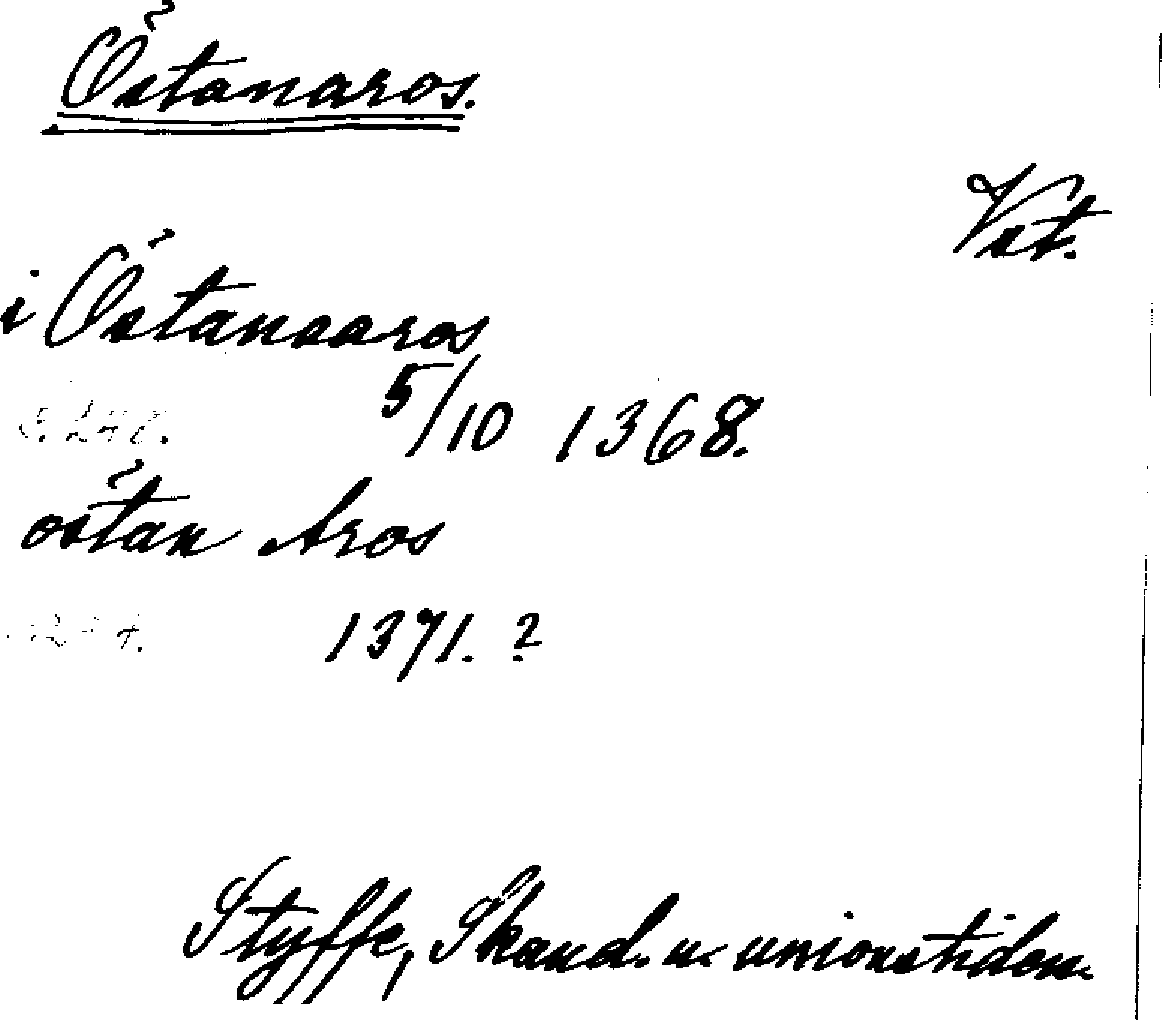 Östanaros.
Vst.
i Östanaaros
s. 248.
5/10 1368.
östan Aros
1371. ?
Styffe, Skand. u. unionstiden.